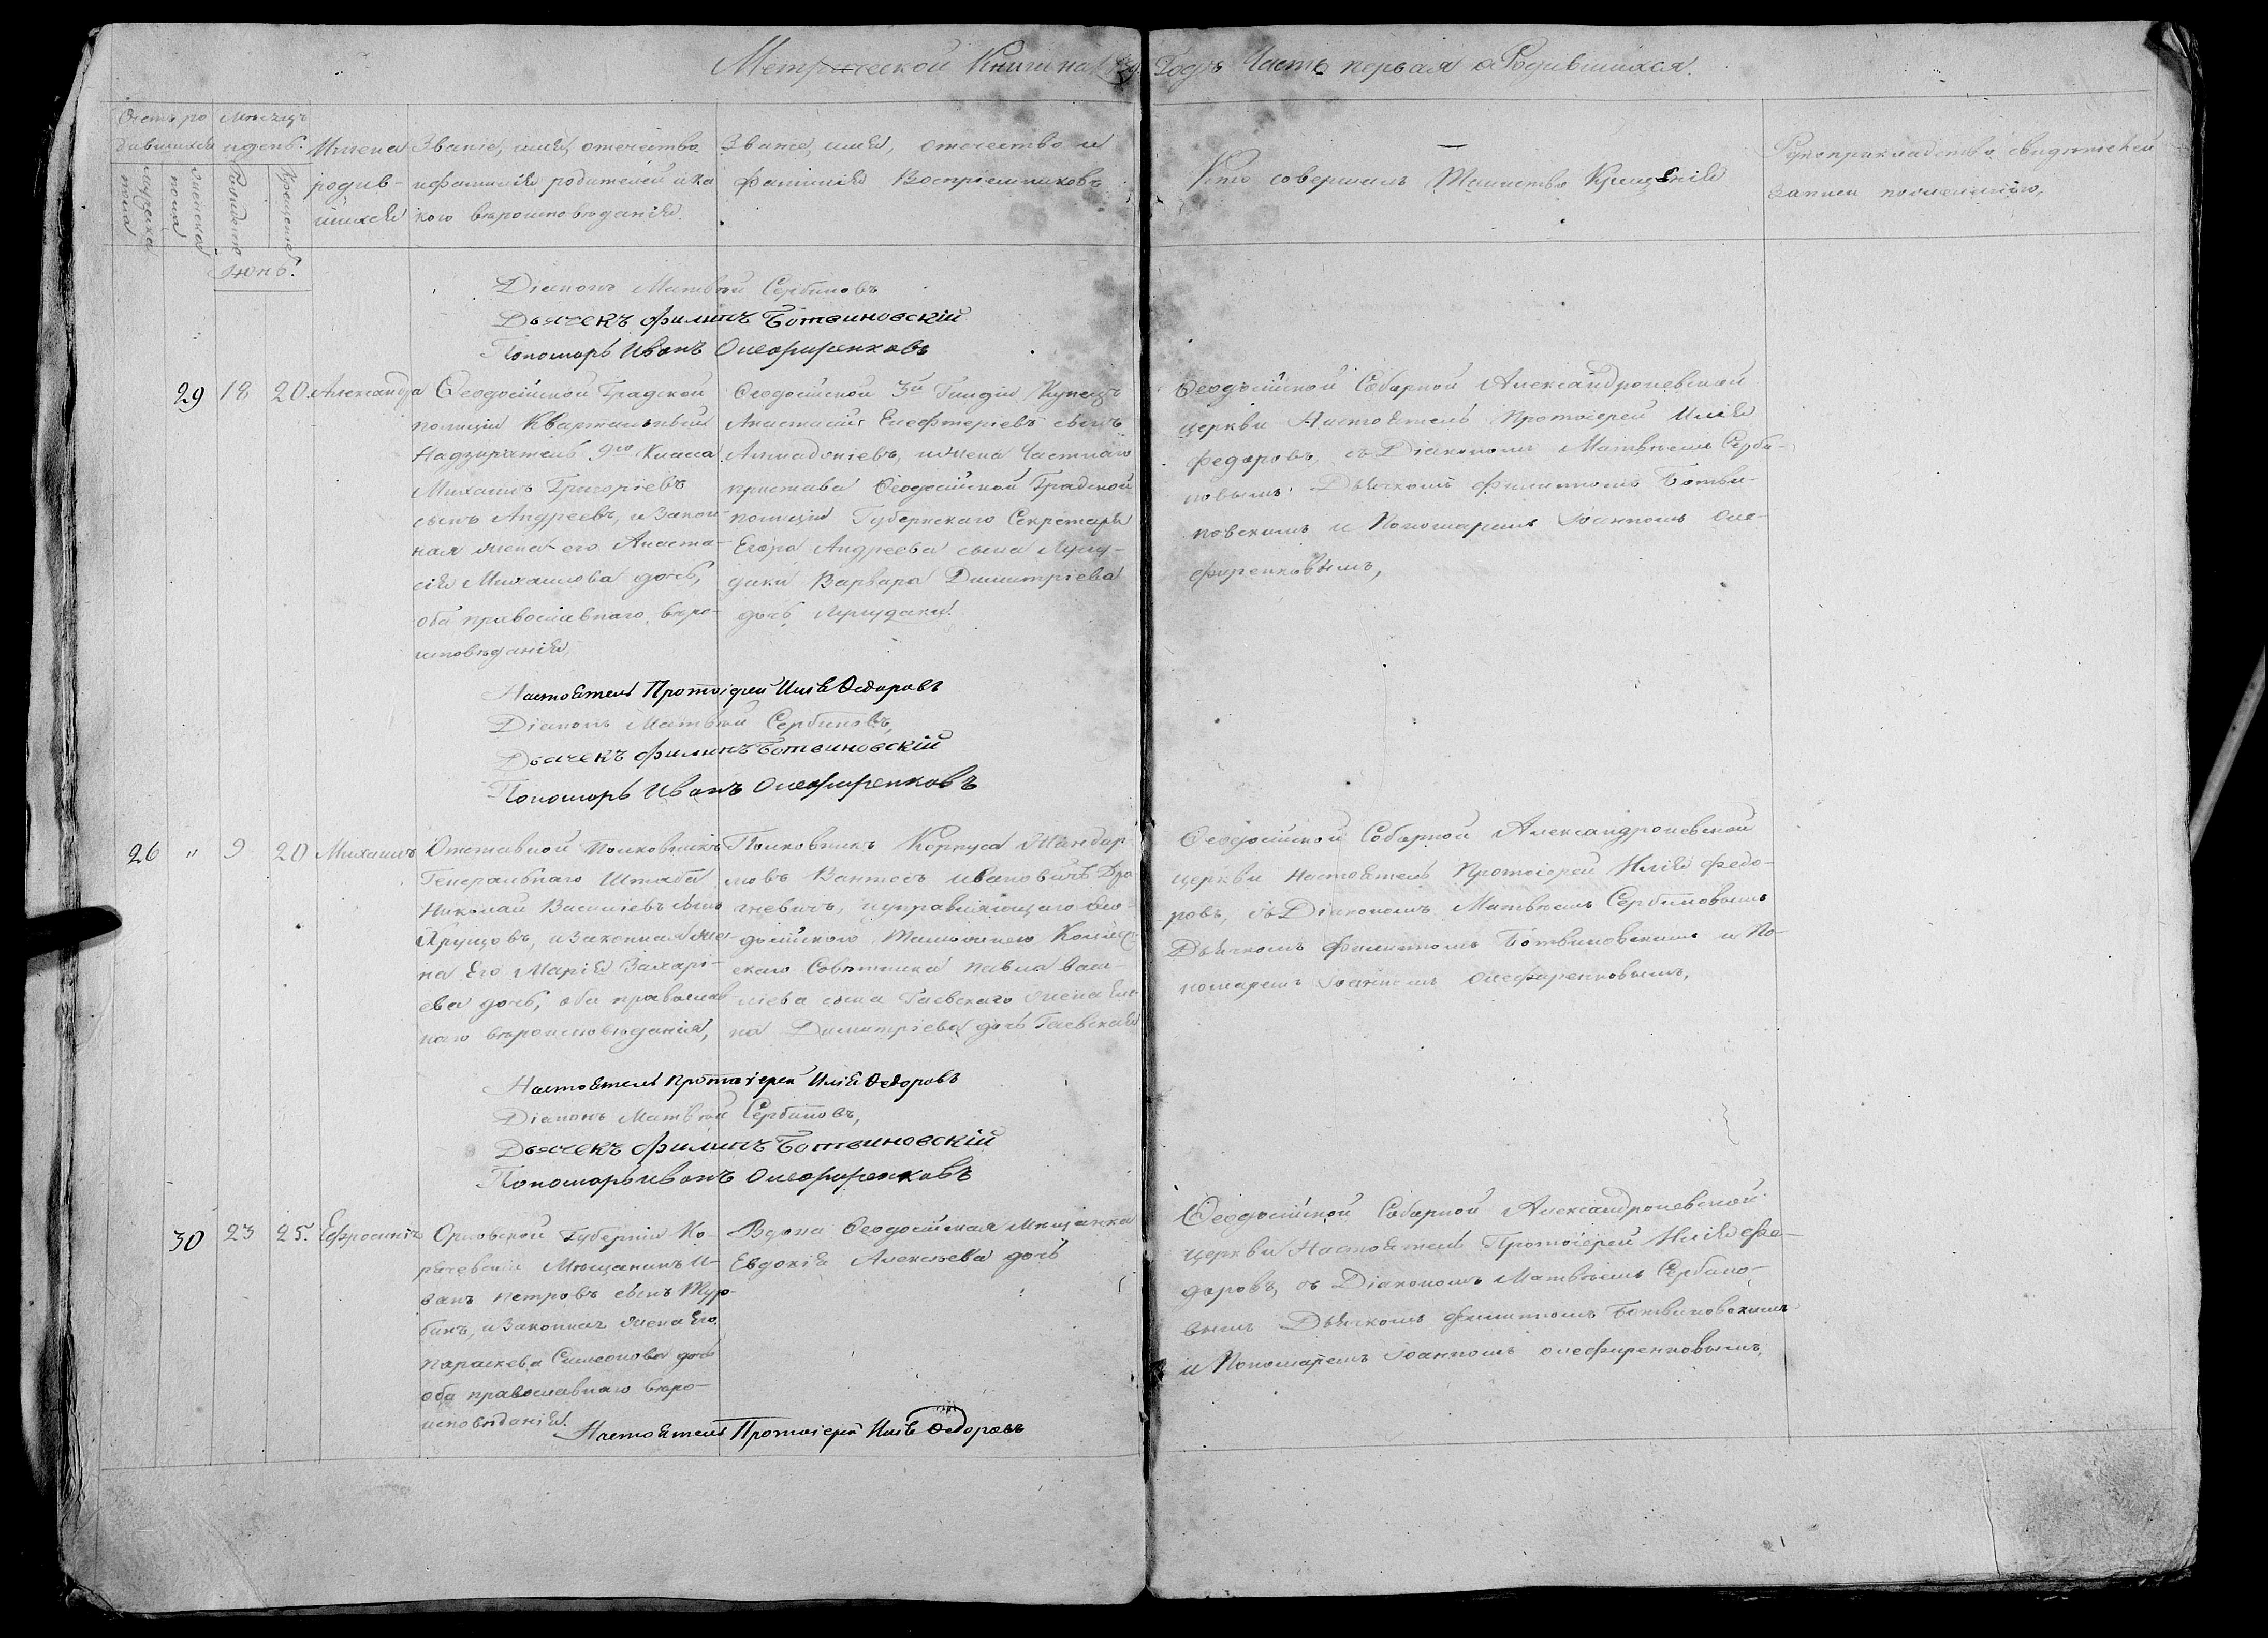 Метрической Книги на 18 Годъ Часть первая о Родившихся.
Счетъ ро
дившихся
мужеска
пола
женска
пола
Мѣсяцъ
и день.
Рожденію
Крещенію
Имена
родив-
шихся
Званіе, имя, отечество
и фамилія родителей и ка
кого вѣроисповѣданія.
Званіе, имя, отечество и
фамилія Воспріемниковъ
Кто совершалъ Таинство Крещенія
Рукоприкладство свидѣтелей
записи по желанію,
Іюнь.
Діаконъ Матвѣй Сербиновъ
Дьячекъ Филипъ Ботвиновскій
Пономарь Иванъ Олефиренковъ
29 18 20 Александра
Ѳеодосійской Градской
полиціи Квартальный
Надзиратель 9го Класса
Михаилъ Григоріевъ
сынъ Андреевъ, и закон-
ная жена его Анаста-
сія Михаилова дочь,
оба православнаго вѣро-
исповѣданія,
Ѳеодосійской 3й Гильдіи Купецъ
Анастасій Елефтеріевъ сынъ
и жена Частнаго
пристава Ѳеодосійской Градской
полиціи Губернскаго Секретаря
Егора Андреева сына
Варвара Димитріева
дочь
Ѳеодосійской Соборной Александроневской
церкви Настоятель Протоіерей Илія
Федоровъ, съ Діакономъ Матвѣемъ Серби-
новымъ, Дьячкомъ Филиппомъ Ботви-
новскимъ и Пономаремъ Іоанномъ Оле-
фиренковымъ,
Настоятель Протоіерей Илія Ѳедоровъ
Діаконъ Матвѣй Сербиновъ,
Дьячекъ Филипъ Ботвиновскій
Пономарь Иванъ Олефиренковъ
26 " 9 20 Михаилъ
Отставной Полковникъ
Генеральнаго Штаба
Николай Василіевъ сынъ
и законная же-
на Его Марія Захарі-
ева дочь, оба православ
наго вѣроисповѣданія,
Полковникъ Корпуса Жандар-
мовъ Ивановичъ
и управляющаго Ѳео-
досійскою Таможнею Коллеж
скаго Совѣтника Павла Васи-
ліева сына Гаевскаго жена Еле-
на Димитріева дочь Гаевская
Ѳеодосійской Соборной Александроневской
церкви Настоятель Протоіерей Илія Федо-
ровъ, съ Діакономъ Матвѣемъ Сербиновымъ
Дьячкомъ Филиппомъ Ботвиновскимъ и По-
номаремъ Іоанномъ Олефиренковымъ,
Настоятель Протоіерей Илія Ѳедоровъ
Діаконъ Матвѣй Сербиновъ,
Дьячекъ Филипъ Ботвиновскій
Пономарь Иванъ Олефиренковъ
30 23 25.
Орловской Губерніи Ко-
рачевскій Мѣщанинъ И-
ванъ Петровъ сынъ Тур-
бинъ, и законная жена Его
Параскева Симеонова дочь
оба православнаго вѣро-
исповѣданія.
Вдова Ѳеодосійская мѣщанка
Евдокія Алексѣева дочь
Ѳеодосійской Соборной Александроневской
церкви Настоятель Протоіерей Илія Фе-
доровъ, съ Діакономъ Матвѣемъ Сербино-
вымъ Дьячкомъ Филиппомъ Ботвиновскимъ
и Пономаремъ Іоанномъ Олефиренковымъ,
Настоятель Протоіерей Илія Ѳедоровъ